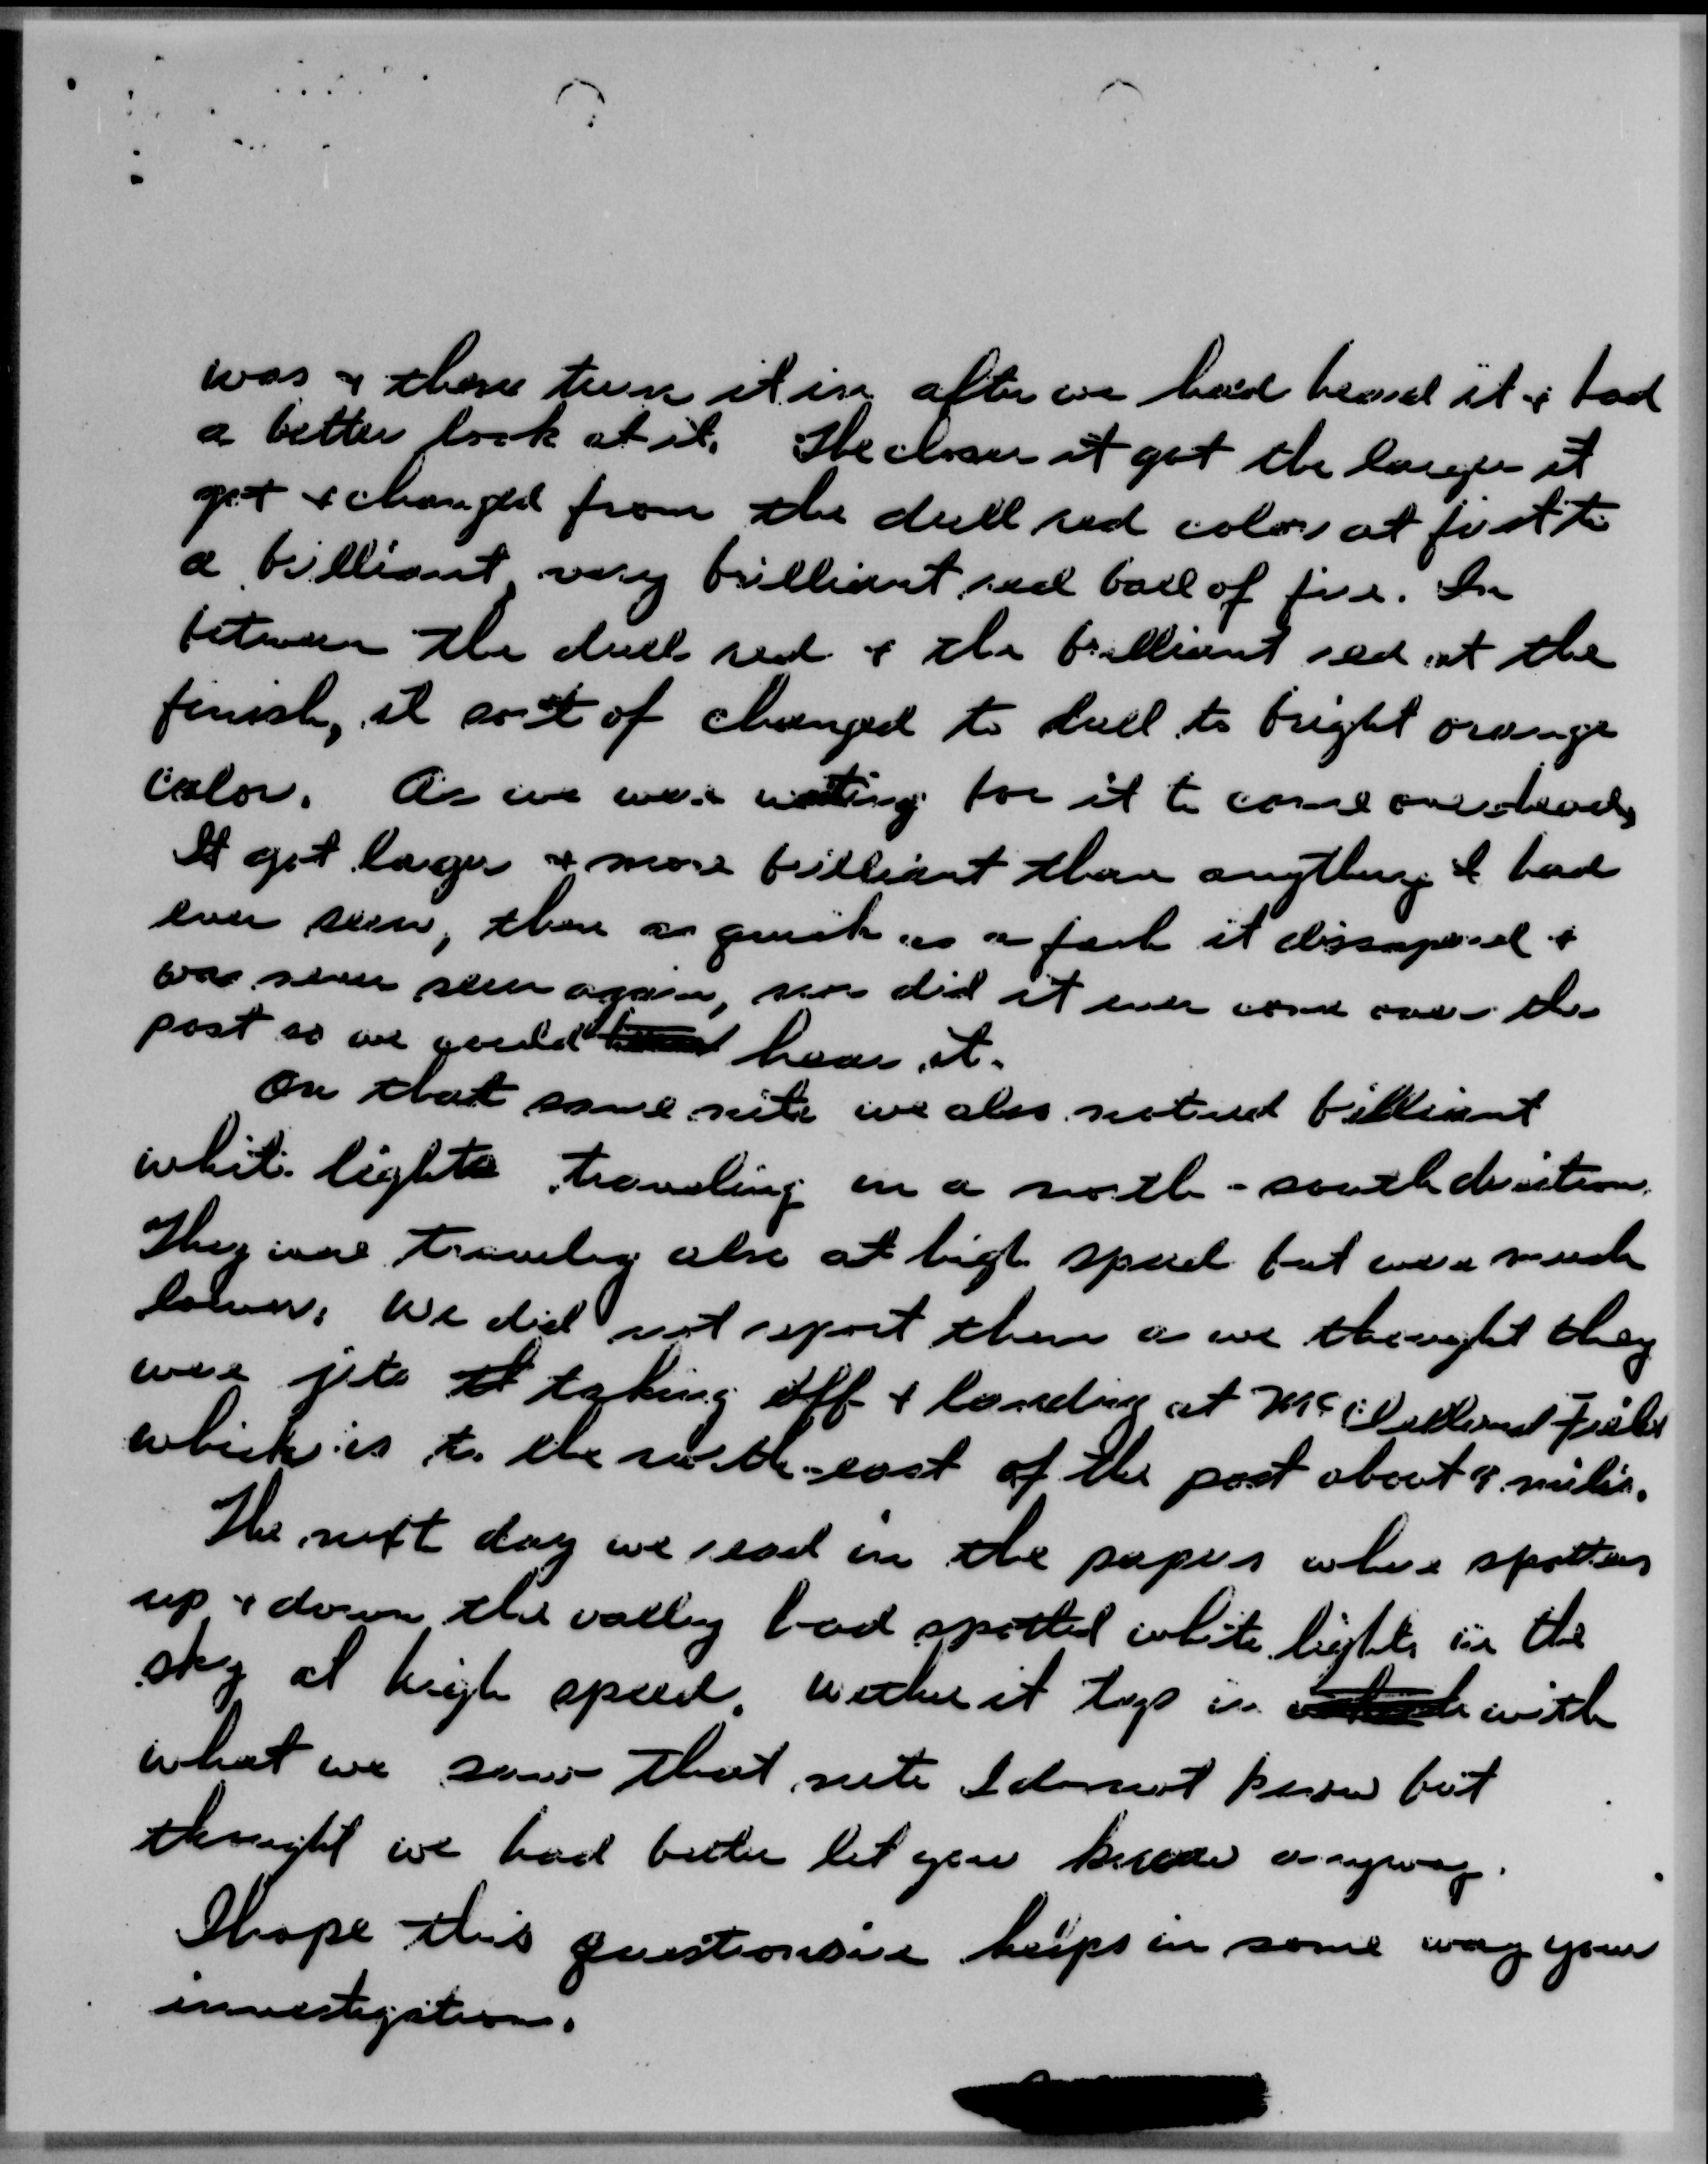 was & then turn it in after we had heard it & had
a better look at it. The closer it got the larger it
got & changed from the dull red color at first to
a brilliant, very brilliant red ball of fire. In
between the dull red & the brilliant red at the
finish, it sort of changed to dull to bright orange
color. As we were waiting for it to come overhead,
It got larger & more brilliant than anything I had
ever seen, then as quick as a it dissapered &
was never seen again, nor did it ever come over the
post so we could hear it.
On that same nite we also noticed brilliant
white lights traveling in a north-south direction.
They were traveling also at high speed but were much
lower. We did not report them as we thought they
were jets taking off & landing at McClelland Field
which is to the north-east of the post about miles.
The next day we read in the papers where spotters
up & down the valley had spotted white lights in the
sky at high speed. Wether it in with
what we saw that nite I do not know but
thought we had better let you know anyway.
I hope this questionaire helps in some way your
investigation.